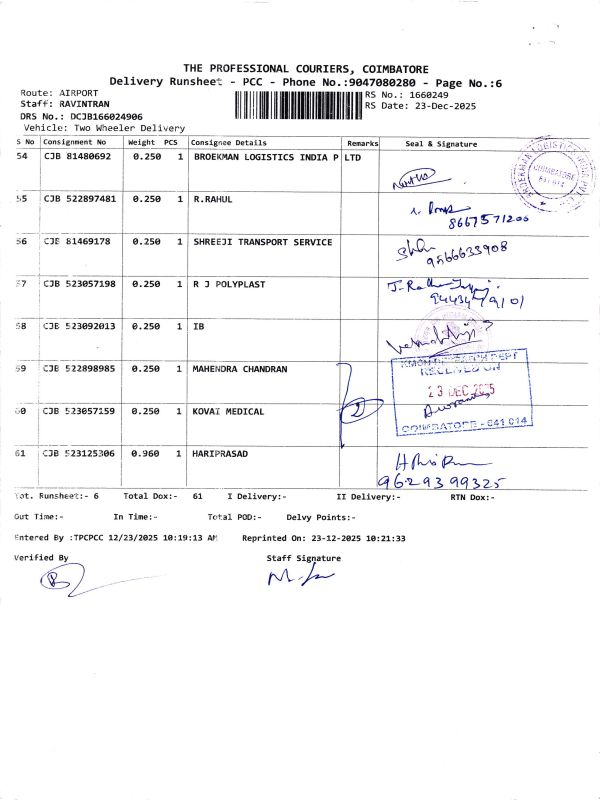 THE PROFESSIONAL COURIERS, COIMBATORE
Delivery Runsheet - PCC - Phone No.:9047080280 - Page No.:6
Route: AIRPORT
RS No.: 1660249
Staff: RAVINTRAN
RS Date: 23-Dec-2025
DRS No.: DCJB166024906
Vehicle: Two Wheeler Delivery
S No Consignment No Weight PCS Consignee Details Remarks Seal & Signature
54 CJB 81480692 0.250 1 BROEKMAN LOGISTICS INDIA P LTD
BROEKMAN LOGISTICS INDIA PVT.
COIMBATORE
55 CJB 522897481 0.250 1 R.RAHUL
8667571200
56 CJE 81469178 0.250 1 SHREEJI TRANSPORT SERVICE
9566633908
57 CJB 523057198 0.250 1 R J POLYPLAST
9443479101
58 CJB 523092013 0.250 1 IB
59 CJB 522898985 0.250 1 MAHENDRA CHANDRAN
KMCH RESEARCH DEPT
RECEIVED ON
23 DEC 2025
60 CJB 523057159 0.250 1 KOVAI MEDICAL
2
COIMBATORE - 641 014
61 CJB 523125306 0.960 1 HARIPRASAD
9629399325
Tot. Runsheet:- 6 Total Dox:- 61 I Delivery:- II Delivery:- RTN Dox:-
Out Time:- In Time:- Total POD:- Delvy Points:-
Entered By :TPCPCC 12/23/2025 10:19:13 AM Reprinted On: 23-12-2025 10:21:33
Verified By Staff Signature